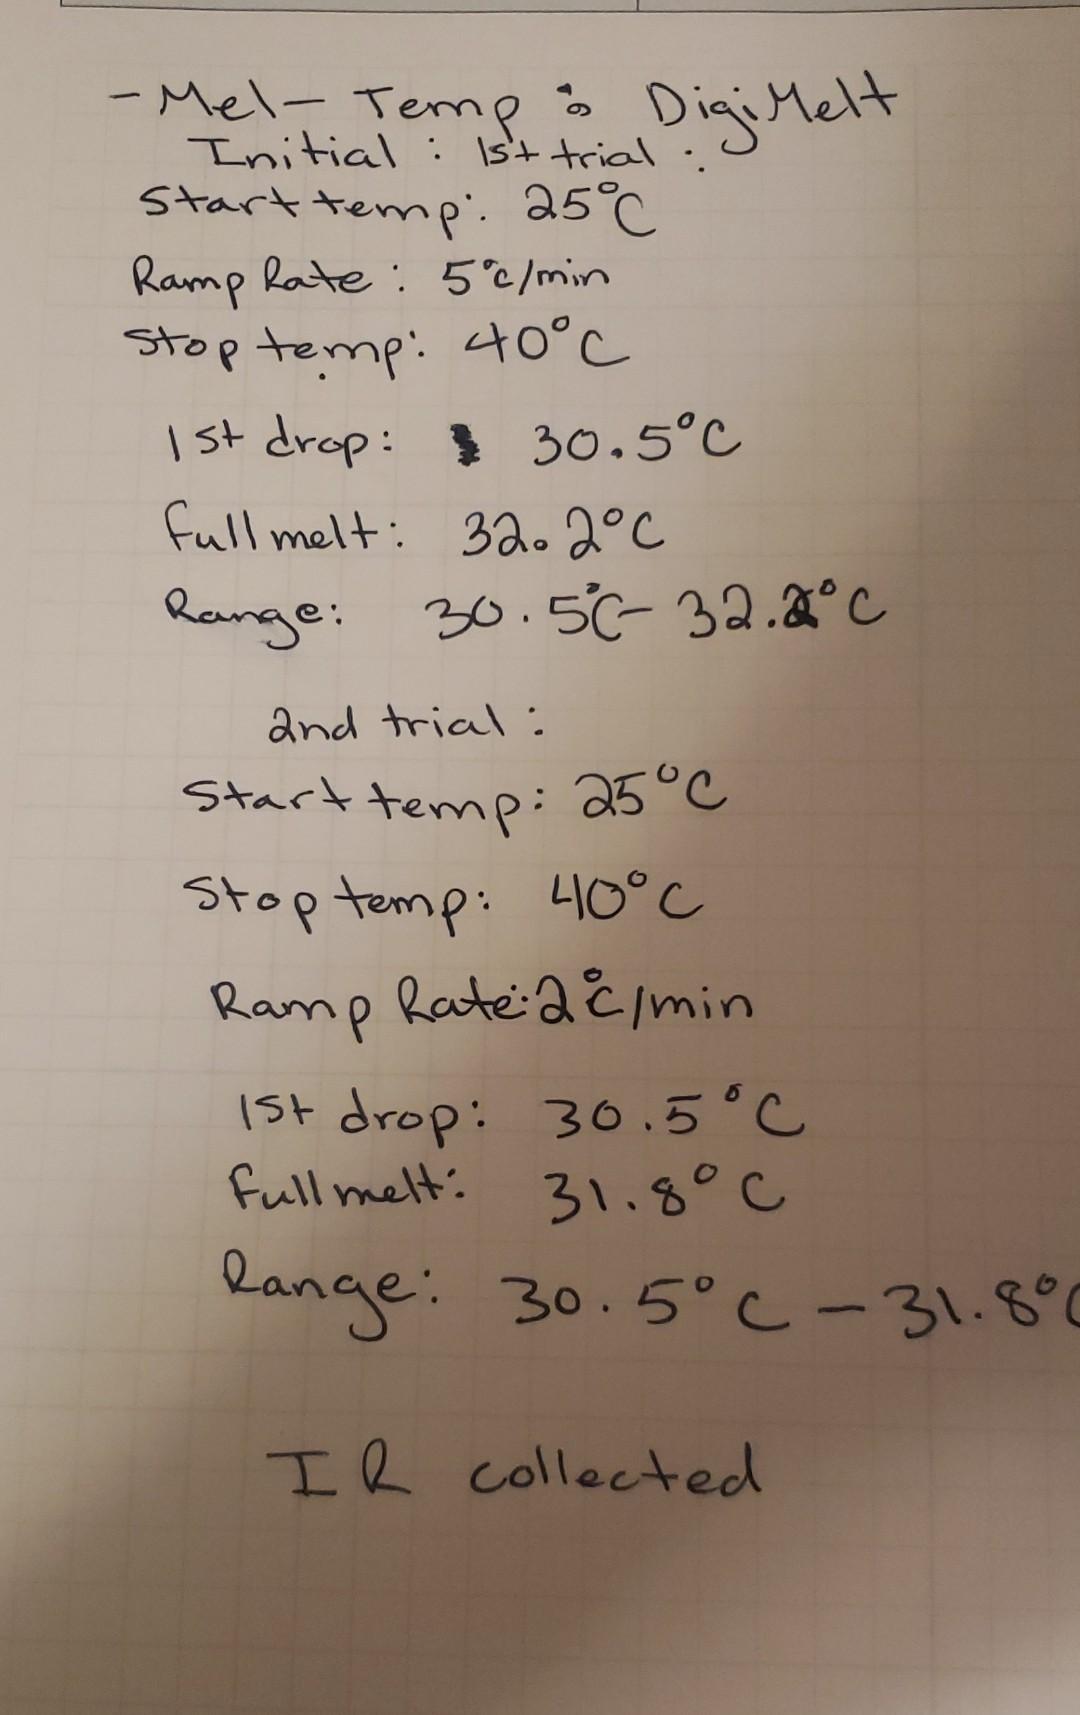 - Mel-Temp : DigiMelt
Initial : 1st trial :
Start temp: 25°C
Ramp Rate : 5°c/min
Stop temp: 40°C
1st drop: 30.5°C
full melt: 32.2°C
Range: 30.5°C- 32.2°C
2nd trial :
Start temp: 25°C
Stop temp: 40°C
Ramp Rate: 2°C/min
1st drop: 30.5°C
full melt: 31.8°C
Range: 30.5°C - 31.8°C
IR collected